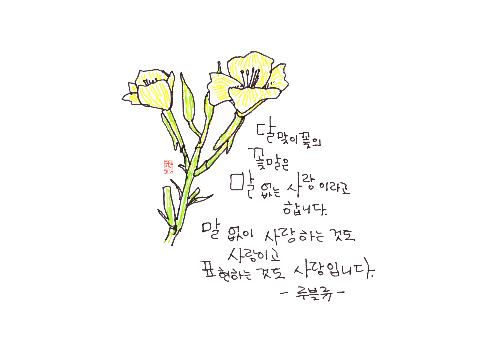 달맞이꽃의
꽃말은
말 없는 사랑이라고
합니다.
말 없이 사랑하는 것도
사랑이고
표현하는 것도 사랑입니다.
- 루블류 -